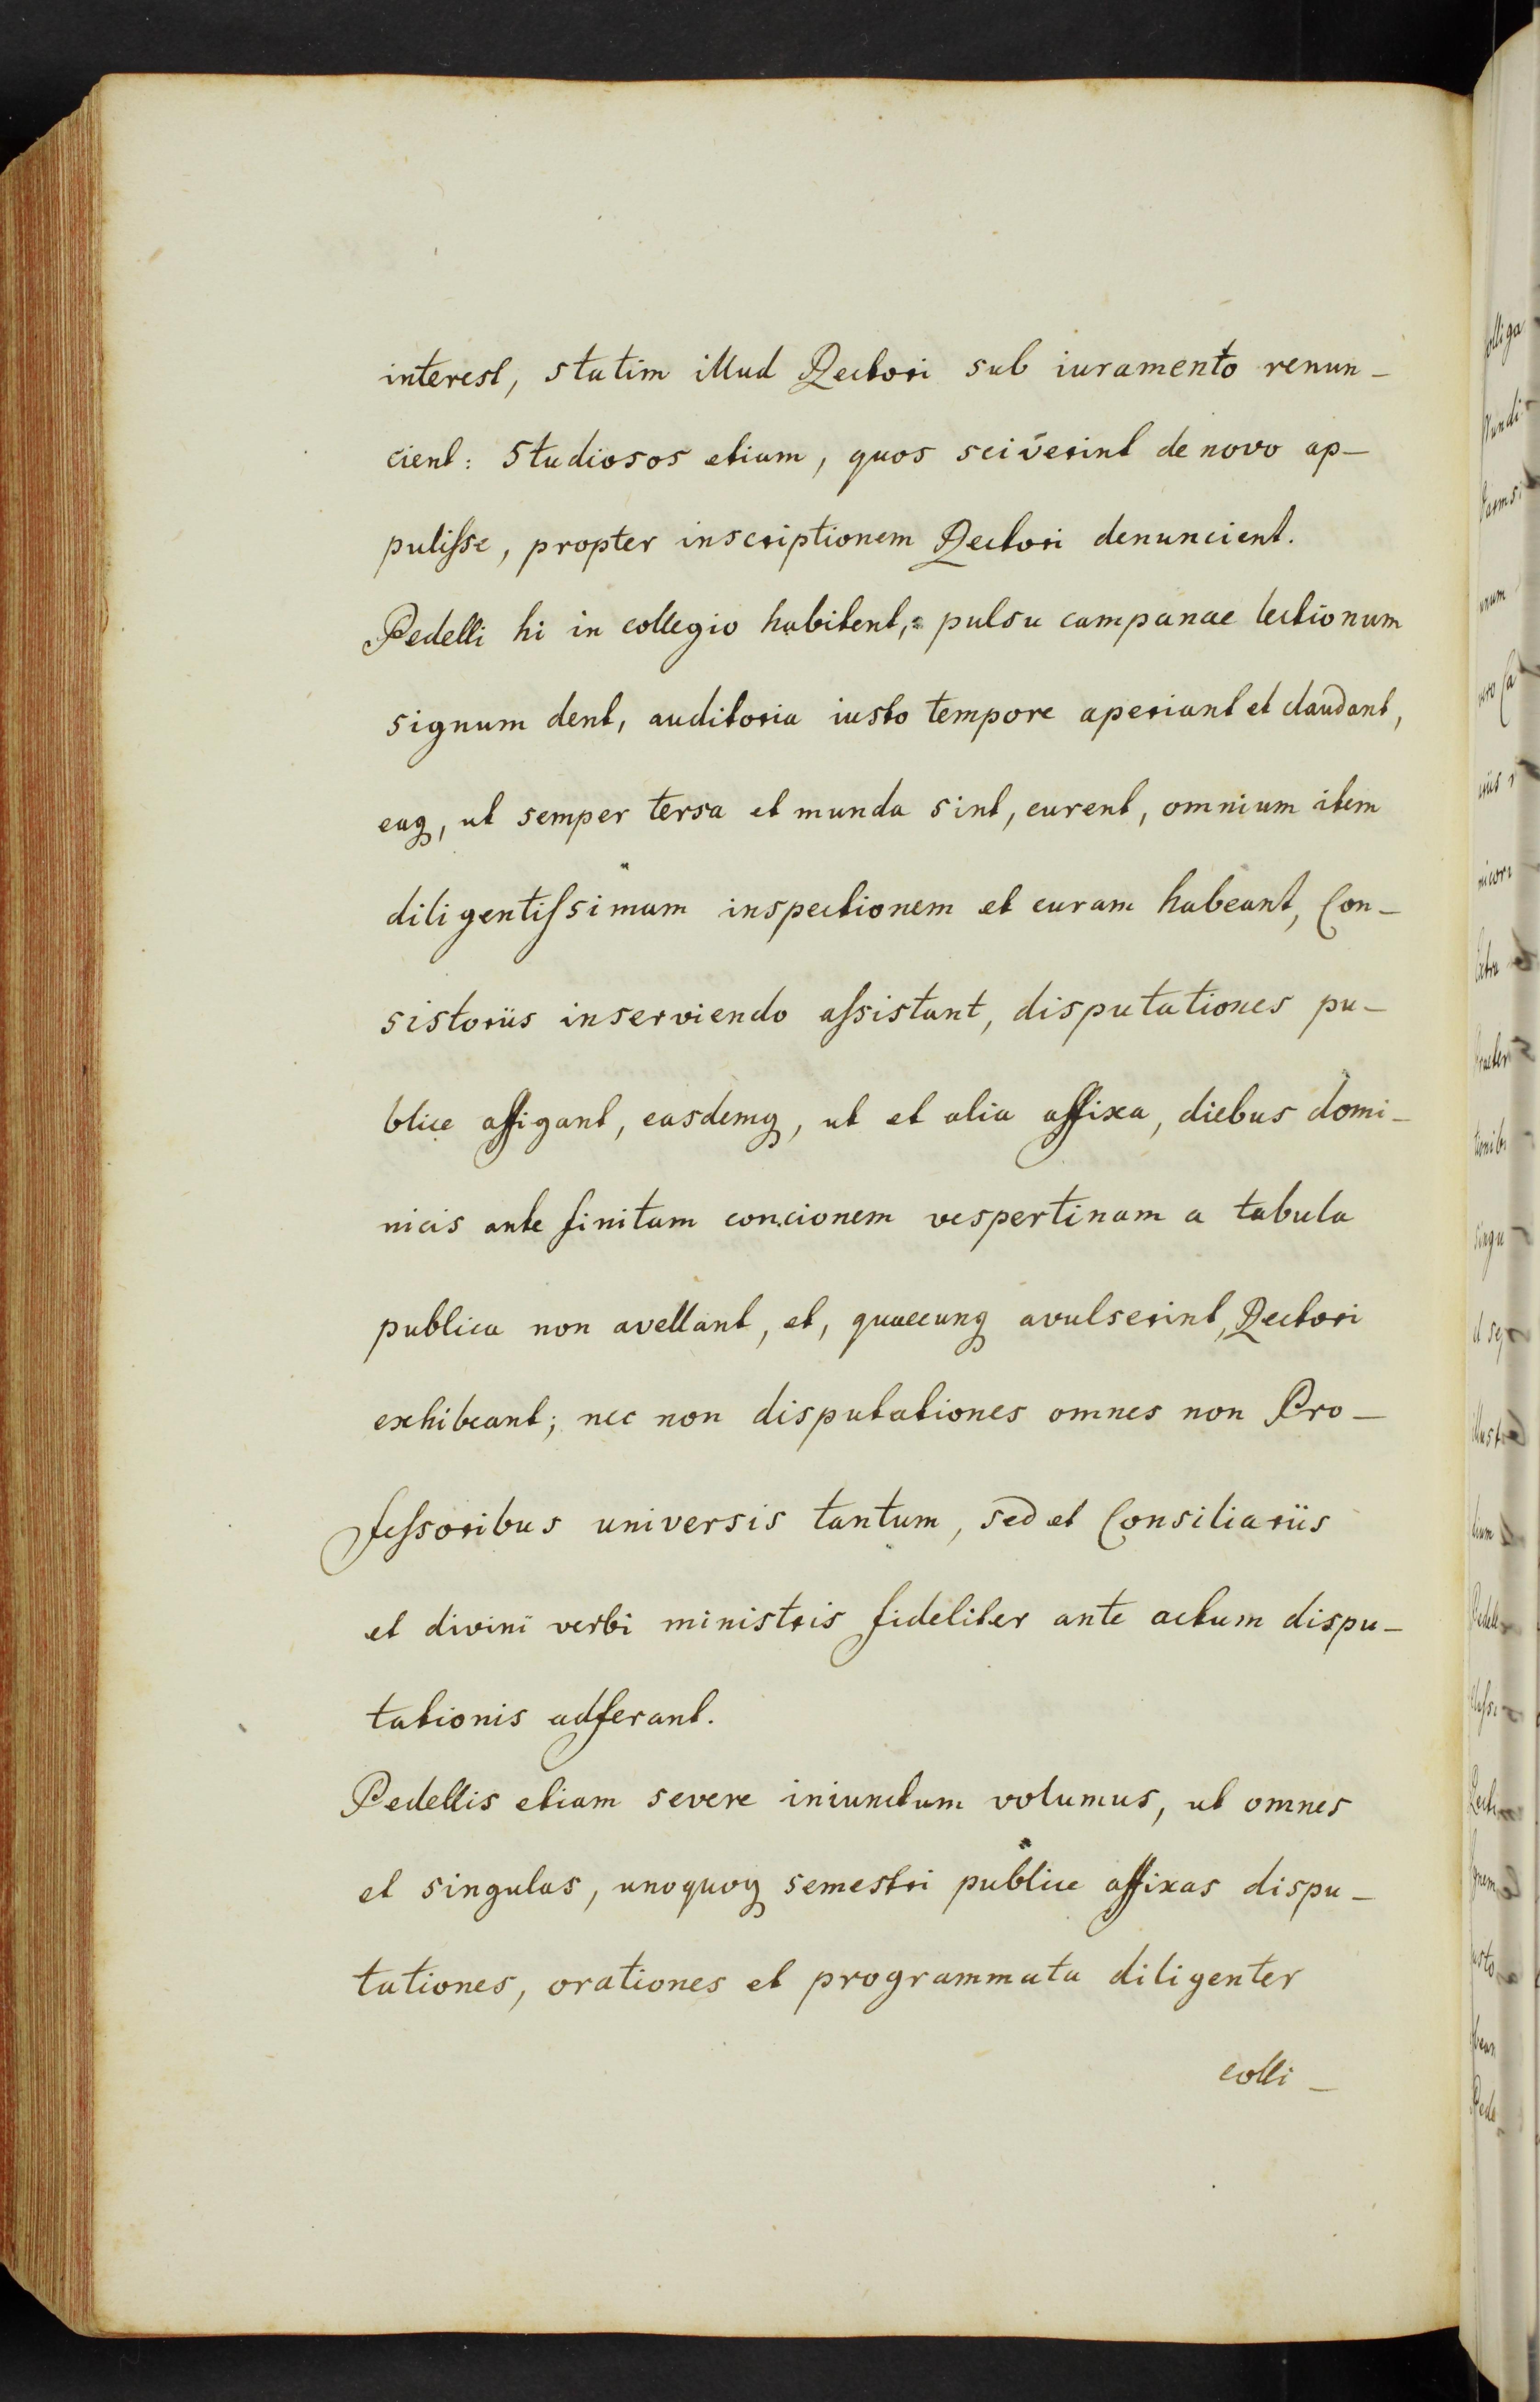 interest, statim illud Rectori sub iuramento renun-
cient: Studiosos etiam, quos sciverint de novo ap-
pulisse, propter inscriptionem Rectori denuncient.
Pedelli hi in collegio habitent, pulsu campanae lectionum
signum dent, auditoria iusto tempore aperiant et claudant,
eaq, ut semper tersa et munda sint, curent, omnium item
diligentissimam inspectionem et curam habeant, Con-
sistoriis inserviendo assistant, disputationes pu-
blice affigant, easdemq, ut et alia affixa, diebus domi-
nicis ante finitam concionem vespertinam a tabula
publica non avellant, et, quaecunq avulserint, Rectori
exhibeant; nec non disputationes omnes non Pro-
fessoribus universis tantum, sed et Consiliariis
et divini verbi ministris fideliter ante actum dispu-
tationis adferant.
Pedellis etiam severe iniunctum volumus, ut omnes
et singulas, unoquoq semestri publice affixas dispu-
tationes, orationes et programmata diligenter
colli-